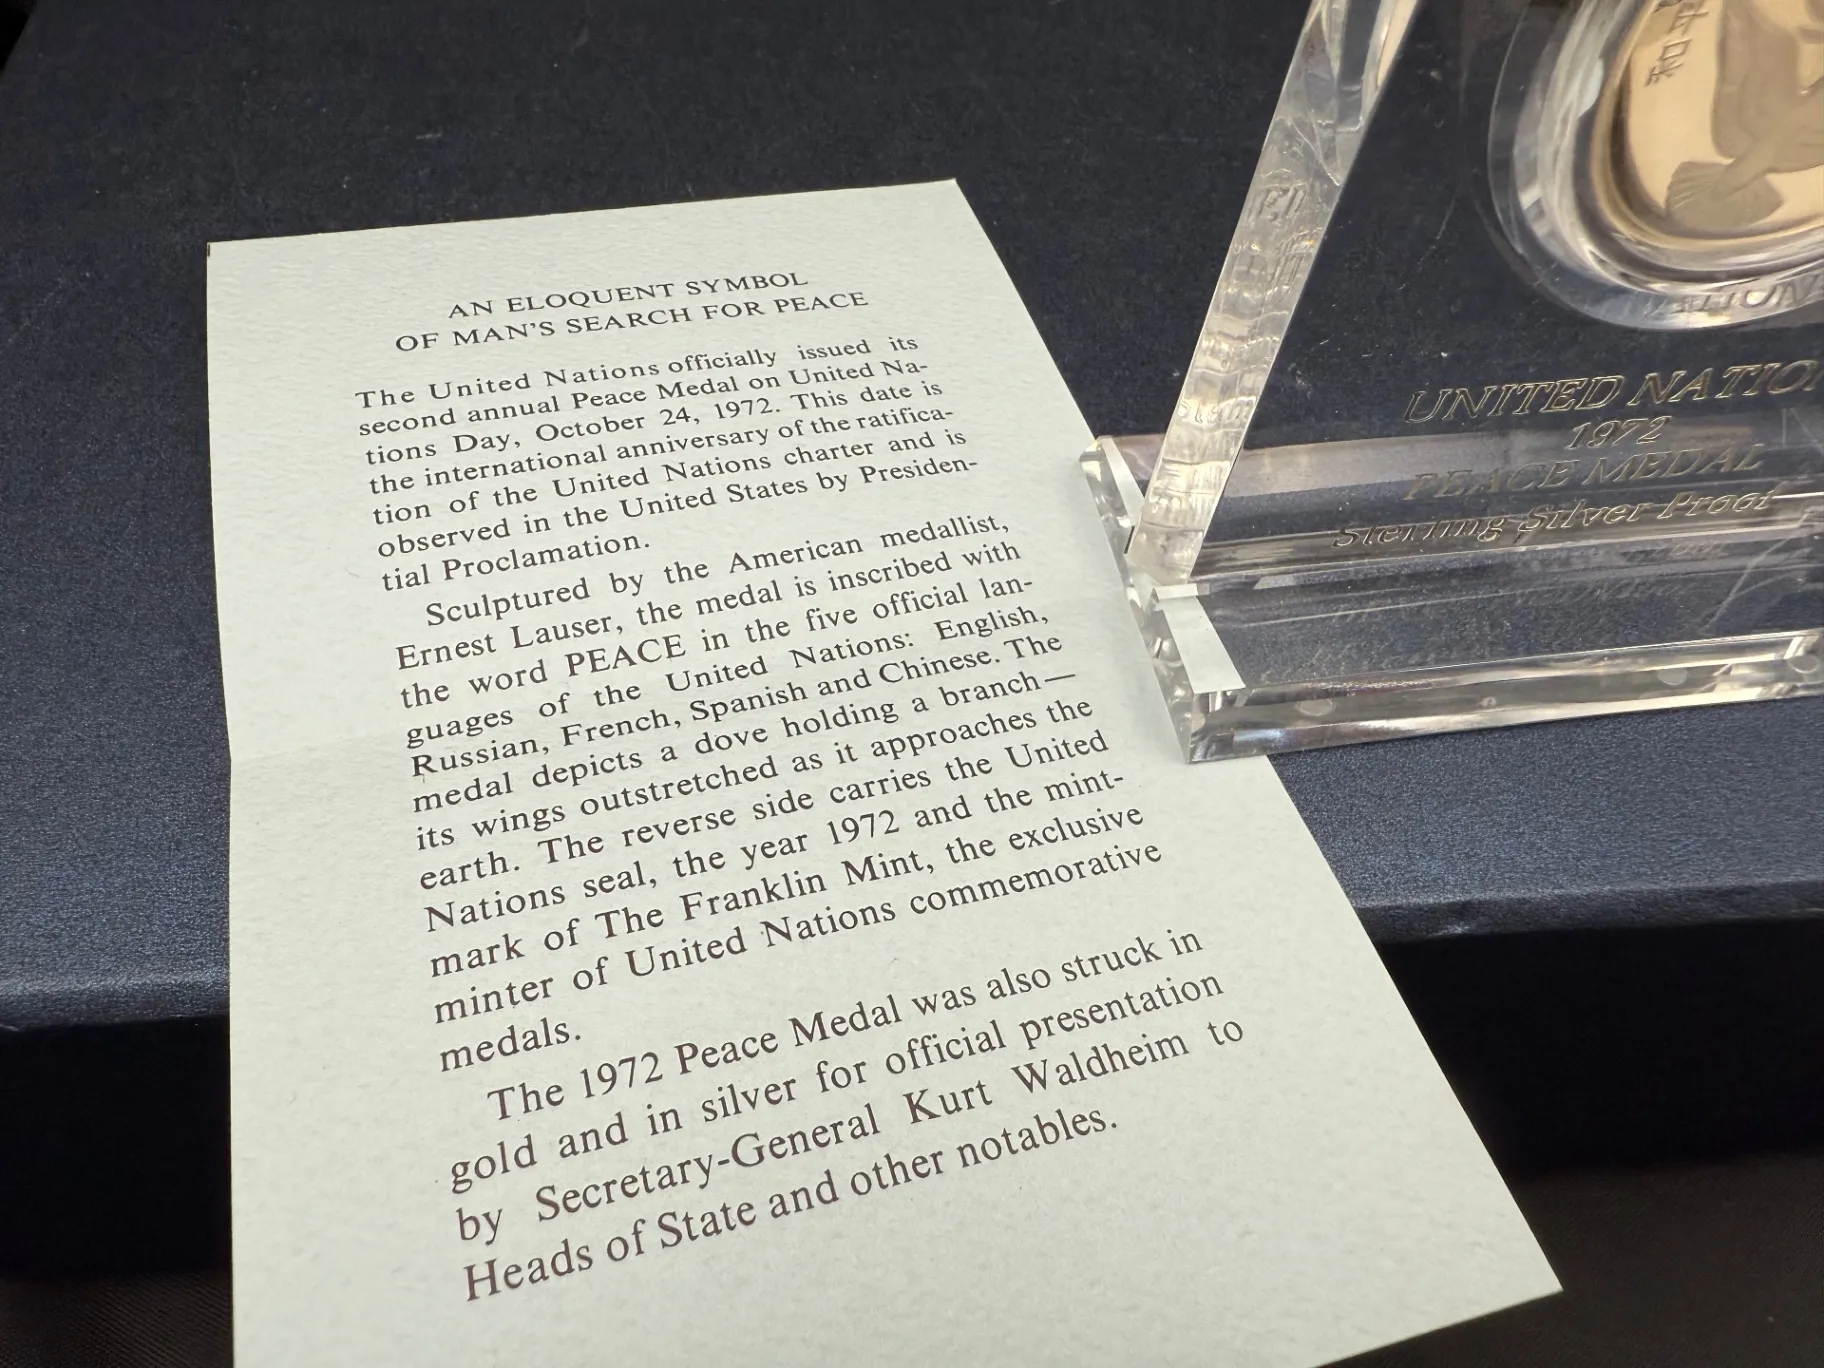 AN ELOQUENT SYMBOL
OF MAN'S SEARCH FOR PEACE
The United Nations officially issued its
second annual Peace Medal on United Na-
tions Day, October 24, 1972. This date is
the international anniversary of the ratifica-
tion of the United Nations charter and is
observed in the United States by Presiden-
tial Proclamation.
Sculptured by the American medallist,
Ernest Lauser, the medal is inscribed with
the word PEACE in the five official lan-
guages of the United Nations: English,
Russian, French, Spanish and Chinese. The
medal depicts a dove holding a branch—
its wings outstretched as it approaches the
earth. The reverse side carries the United
Nations seal, the year 1972 and the mint-
mark of The Franklin Mint, the exclusive
minter of United Nations commemorative
medals.
The 1972 Peace Medal was also struck in
gold and in silver for official presentation
by Secretary-General Kurt Waldheim to
Heads of State and other notables.
UNITED NATIO
1972
PEACE MEDAL
Sterling Silver Proof